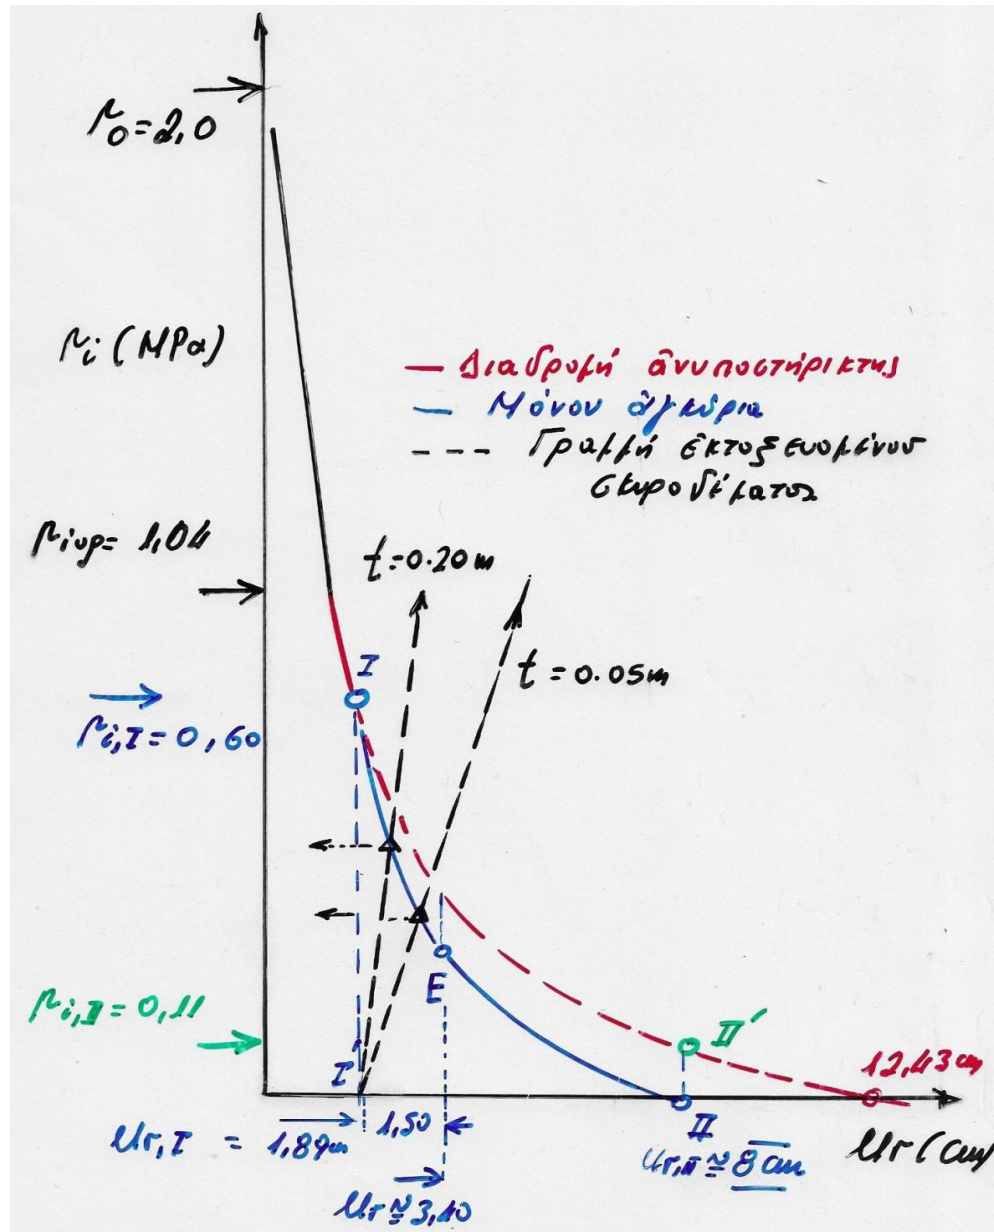 p₀=2,0
pᵢ (MPa)
— Διαδρομή ἀνυποστήρικτης
— Μόνον ἀγκύρια
--- Γραμμή ἐκτοξευομένου
σκυροδέματος
pᵢᵤρ= 1,04
t=0.20m
t=0.05m
I
pᵢ,I=0,60
E
pᵢ,II=0,11
II′
I′
12,43 cm
1,50
II
Ur,I = 1,89cm
Ur,II≅8cm
Ur(cm)
Ur≅3,40